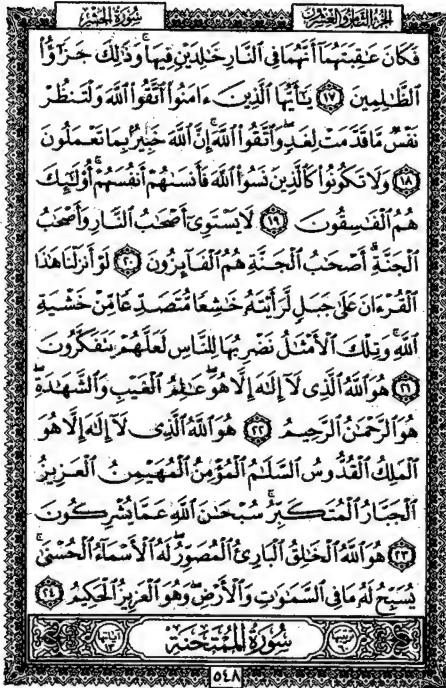 الجزء الثامن والعشرون سورة الحشر
فَكَانَ عَٰقِبَتَهُمَآ أَنَّهُمَا فِى ٱلنَّارِ خَٰلِدَيْنِ فِيهَا ۚ وَذَٰلِكَ جَزَٰٓؤُا۟
ٱلظَّٰلِمِينَ ١٧ يَٰٓأَيُّهَا ٱلَّذِينَ ءَامَنُوا۟ ٱتَّقُوا۟ ٱللَّهَ وَلْتَنظُرْ
نَفْسٌ مَّا قَدَّمَتْ لِغَدٍ ۖ وَٱتَّقُوا۟ ٱللَّهَ ۚ إِنَّ ٱللَّهَ خَبِيرٌۢ بِمَا تَعْمَلُونَ
١٨ وَلَا تَكُونُوا۟ كَٱلَّذِينَ نَسُوا۟ ٱللَّهَ فَأَنسَىٰهُمْ أَنفُسَهُمْ ۚ أُو۟لَٰٓئِكَ
هُمُ ٱلْفَٰسِقُونَ ١٩ لَا يَسْتَوِىٓ أَصْحَٰبُ ٱلنَّارِ وَأَصْحَٰبُ
ٱلْجَنَّةِ ۚ أَصْحَٰبُ ٱلْجَنَّةِ هُمُ ٱلْفَآئِزُونَ ٢٠ لَوْ أَنزَلْنَا هَٰذَا
ٱلْقُرْءَانَ عَلَىٰ جَبَلٍ لَّرَأَيْتَهُۥ خَٰشِعًا مُّتَصَدِّعًا مِّنْ خَشْيَةِ
ٱللَّهِ ۚ وَتِلْكَ ٱلْأَمْثَٰلُ نَضْرِبُهَا لِلنَّاسِ لَعَلَّهُمْ يَتَفَكَّرُونَ
٢١ هُوَ ٱللَّهُ ٱلَّذِى لَآ إِلَٰهَ إِلَّا هُوَ ۖ عَٰلِمُ ٱلْغَيْبِ وَٱلشَّهَٰدَةِ ۖ
هُوَ ٱلرَّحْمَٰنُ ٱلرَّحِيمُ ٢٢ هُوَ ٱللَّهُ ٱلَّذِى لَآ إِلَٰهَ إِلَّا هُوَ
ٱلْمَلِكُ ٱلْقُدُّوسُ ٱلسَّلَٰمُ ٱلْمُؤْمِنُ ٱلْمُهَيْمِنُ ٱلْعَزِيزُ
ٱلْجَبَّارُ ٱلْمُتَكَبِّرُ ۚ سُبْحَٰنَ ٱللَّهِ عَمَّا يُشْرِكُونَ
٢٣ هُوَ ٱللَّهُ ٱلْخَٰلِقُ ٱلْبَارِئُ ٱلْمُصَوِّرُ ۖ لَهُ ٱلْأَسْمَآءُ ٱلْحُسْنَىٰ ۚ
يُسَبِّحُ لَهُۥ مَا فِى ٱلسَّمَٰوَٰتِ وَٱلْأَرْضِ ۖ وَهُوَ ٱلْعَزِيزُ ٱلْحَكِيمُ ٢٤
ترتيبها ٦٠ سورة الممتحنة آياتها ١٣
٥٤٨